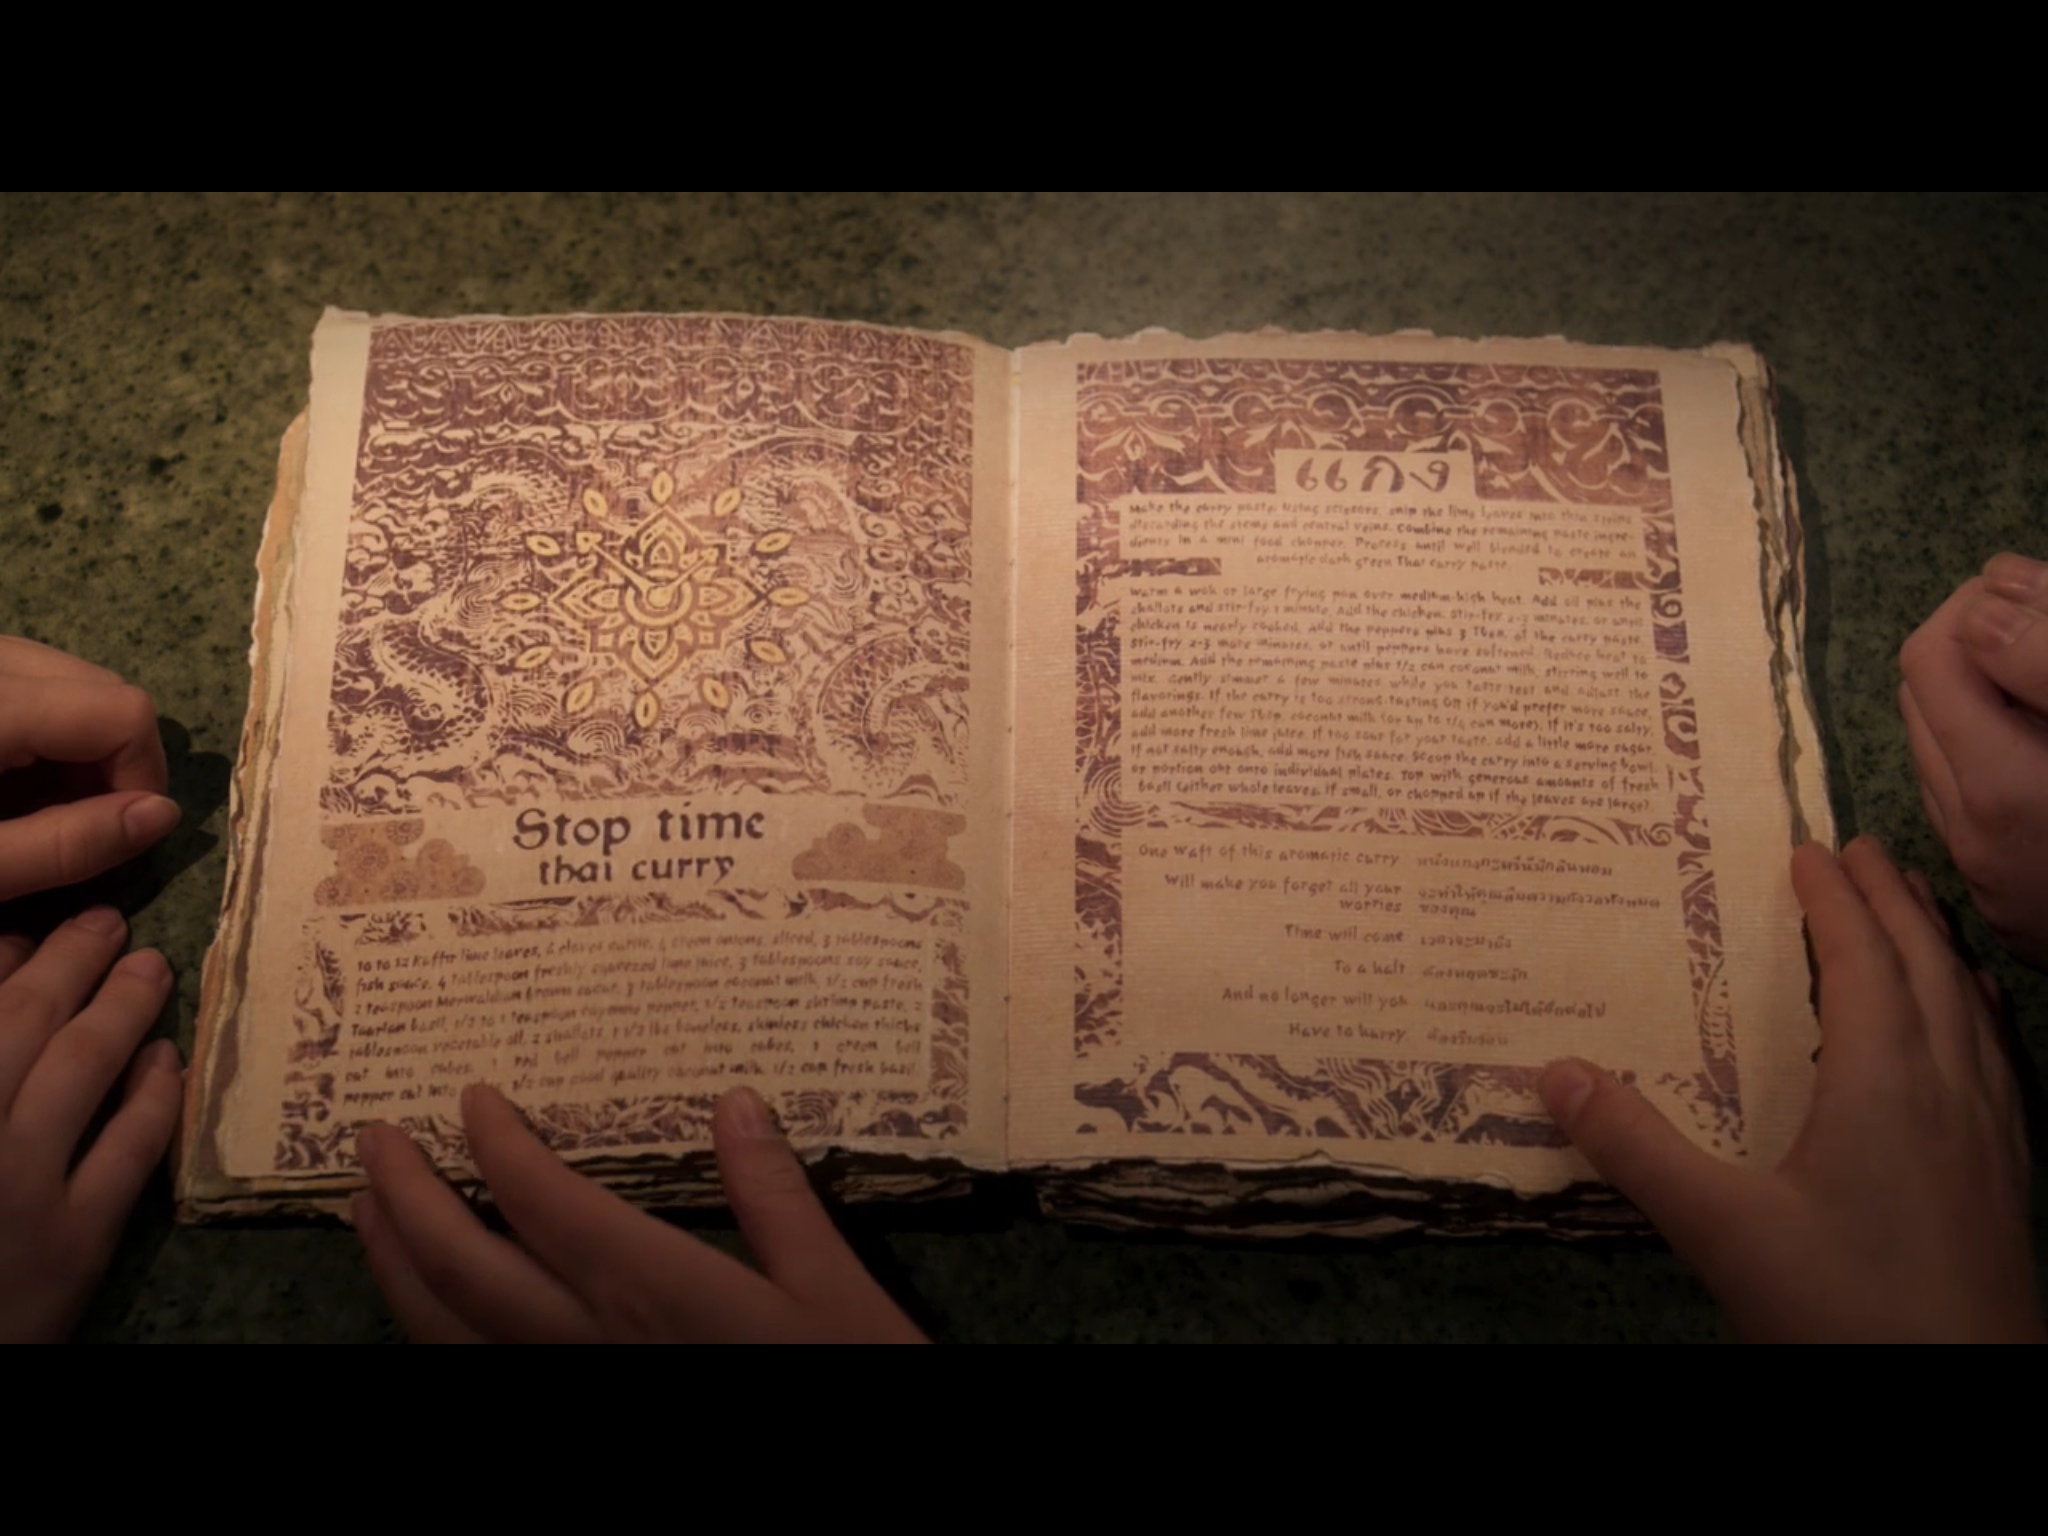 Stop time
thai curry
10 to 12 Kaffir lime leaves, 4 cloves garlic, 4 green onions, sliced, 3 tablespoons
fish sauce, 4 tablespoon freshly squeezed lime juice, 3 tablespoons soy sauce,
1 teaspoon Merwaldian brown sugar, 3 tablespoon coconut milk, 1/2 cup fresh
Taurian basil, 1/2 to 1 teaspoon cayenne pepper, 1/2 teaspoon shrimp paste, 2
tablespoon vegetable oil, 2 shallots, 1 1/2 lbs boneless, skinless chicken thighs
cut into cubes, 1 red bell pepper cut into cubes, 1 green bell
pepper cut into 1/2 can good quality coconut milk, 1/2 cup fresh basil.
แกง
Make the curry paste: Using scissors, snip the lime leaves into thin strips,
discarding the stems and central veins. Combine the remaining paste ingre-
dients in a mini food chopper. Process until well blended to create an
aromatic dark green Thai curry paste.
Warm a wok or large frying pan over medium-high heat. Add oil plus the
shallots and stir-fry 1 minute. Add the chicken. Stir-fry 2-3 minutes, or until
chicken is nearly cooked. Add the peppers plus 3 tbsp. of the curry paste.
Stir-fry 2-3 more minutes, or until peppers have softened. Reduce heat to
medium. Add the remaining paste plus 1/2 can coconut milk, stirring well to
mix. Gently simmer a few minutes while you taste test and adjust the
flavorings. If the curry is too strong-tasting OR if you'd prefer more sauce,
add another few tbsp. coconut milk (or up to 1/4 can more). If it's too salty,
add more fresh lime juice. If too sour for your taste, add a little more sugar.
If not salty enough, add more fish sauce. Scoop the curry into a serving bowl,
or portion out onto individual plates. Top with generous amounts of fresh
basil (either whole leaves, if small, or chopped up if the leaves are large).
One waft of this aromatic curry
Will make you forget all your จะทำให้คุณลืมความกังวลทั้งหมด
worries ของคุณ
Time will come เวลาจะมาถึง
To a halt ต้องหยุดชะงัก
And no longer will you และคุณจะไม่ได้อีกต่อไป
Have to hurry ต้องรีบร้อน